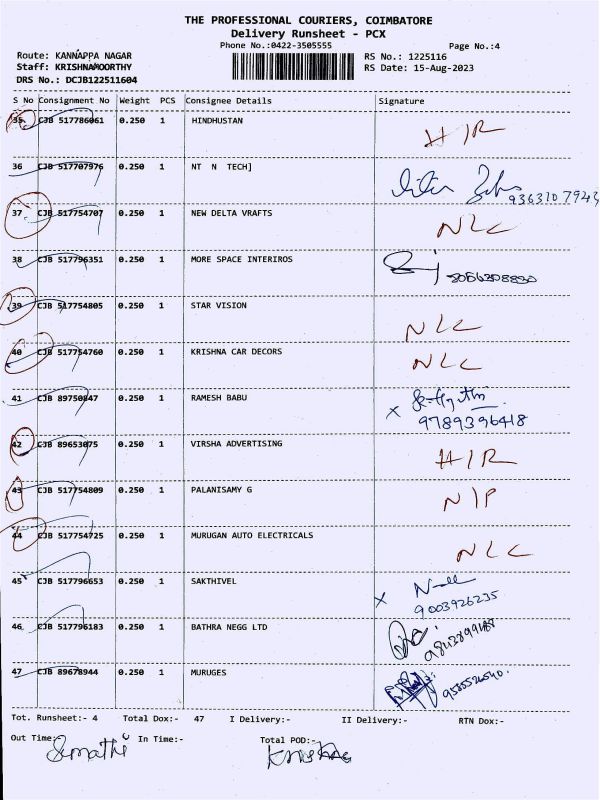 THE PROFESSIONAL COURIERS, COIMBATORE
Delivery Runsheet - PCX
Phone No.:0422-3505555 Page No.:4
Route: KANNAPPA NAGAR RS No.: 1225116
Staff: KRISHNAMOORTHY RS Date: 15-Aug-2023
DRS No.: DCJB122511604
S No Consignment No Weight PCS Consignee Details Signature
35 CJB 517786061 0.250 1 HINDHUSTAN H/R
36 CJB 517707976 0.250 1 NT N TECH]
9363107943
37 CJB 517754707 0.250 1 NEW DELTA VRAFTS NLC
38 CJB 517796351 0.250 1 MORE SPACE INTERIROS
8056308830
39 CJB 517754805 0.250 1 STAR VISION NLC
40 CJB 517754760 0.250 1 KRISHNA CAR DECORS NLC
41 CJB 89750847 0.250 1 RAMESH BABU X
9789396418
42 CJB 89653075 0.250 1 VIRSHA ADVERTISING H/R
43 CJB 517754809 0.250 1 PALANISAMY G N/P
44 CJB 517754725 0.250 1 MURUGAN AUTO ELECTRICALS NLC
45 CJB 517796653 0.250 1 SAKTHIVEL X
9003926235
46 CJB 517796183 0.250 1 BATHRA NEGG LTD
47 CJB 89678944 0.250 1 MURUGES
Tot. Runsheet:- 4 Total Dox:- 47 I Delivery:- II Delivery:- RTN Dox:-
Out Time:- In Time:- Total POD:-